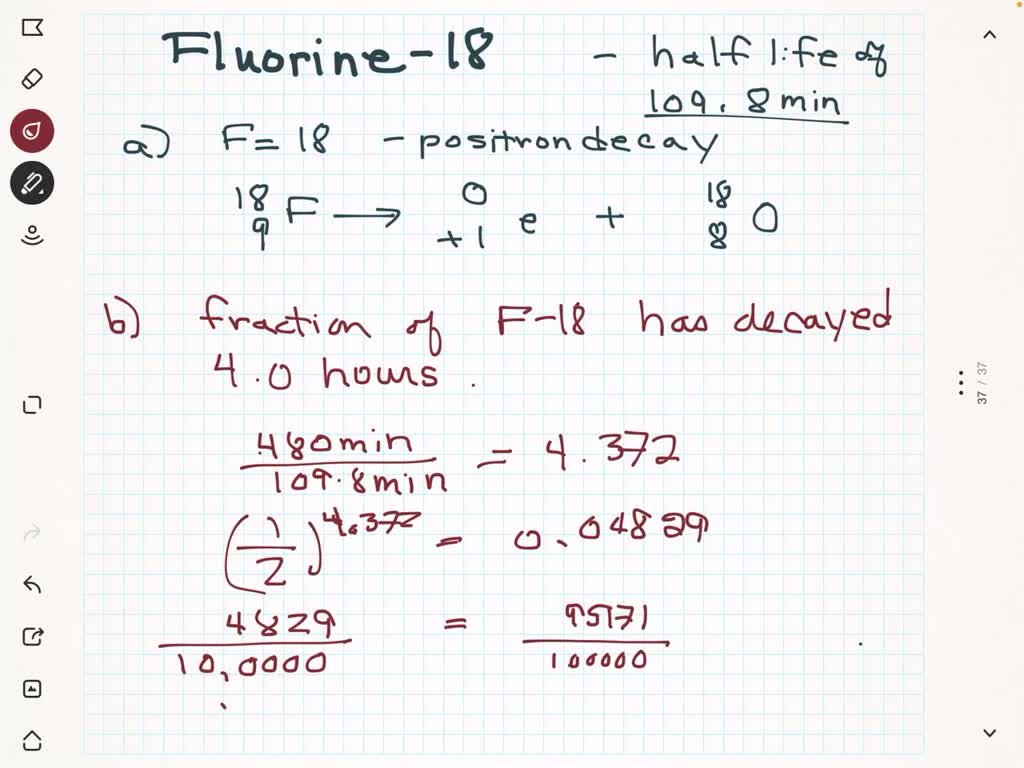 Fluorine-18 - half life of
109.8 min
a) F=18 - positron decay
18 0 18
9 F → +1 e + 8 O
b) fraction of F-18 has decayed
4.0 hours.
480min
109.8min = 4.372
(1/2)^4.372 = 0.04829
4829 = 95171
10,0000 100000
37 / 37